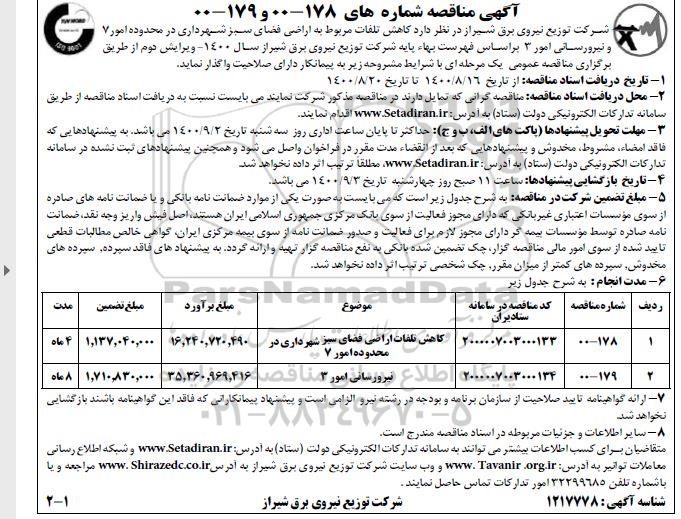 آگهی مناقصه شماره های ۱۷۸-۰۰ و ۱۷۹-۰۰
شرکت توزیع نیروی برق شیراز در نظر دارد کاهش تلفات مربوط به اراضی فضای سبز شهرداری در محدوده امور ۷
و نیرورسانی امور ۳ براساس فهرست بهاء پایه شرکت توزیع نیروی برق شیراز سال ۱۴۰۰- ویرایش دوم از طریق
برگزاری مناقصه عمومی یک مرحله ای با شرایط مشروحه زیر به پیمانکار دارای صلاحیت واگذار نماید.
۱- تاریخ دریافت اسناد مناقصه: از تاریخ ۱۴۰۰/۸/۱۶ تا تاریخ ۱۴۰۰/۸/۲۰
۲- محل دریافت اسناد مناقصه: مناقصه گرانی که تمایل دارند در مناقصه مذکور شرکت نمایند می بایست نسبت به دریافت اسناد مناقصه از طریق
سامانه تدارکات الکترونیکی دولت (ستاد) به آدرس: www.Setadiran.ir اقدام نمایند.
۳- مهلت تحویل پیشنهادها (پاکت های الف، ب و ج): حداکثر تا پایان ساعت اداری روز سه شنبه تاریخ ۱۴۰۰/۹/۲ می باشد. به پیشنهادهایی که
فاقد امضاء، مشروط، مخدوش و پیشنهادهایی که بعد از انقضاء مدت مقرر در فراخوان واصل می شود و همچنین پیشنهادهای ثبت نشده در سامانه
تدارکات الکترونیکی دولت (ستاد) به آدرس: www.Setadiran.ir، مطلقا ترتیب اثر داده نخواهد شد.
۴- تاریخ بازگشایی پیشنهادها: ساعت ۱۱ صبح روز چهارشنبه تاریخ ۱۴۰۰/۹/۳ می باشد.
۵- مبلغ تضمین شرکت در مناقصه: به شرح جدول زیر است که می بایست به صورت یکی از موارد ضمانت نامه بانکی و یا ضمانت نامه های صادره
از سوی مؤسسات اعتباری غیربانکی که دارای مجوز فعالیت از سوی بانک مرکزی جمهوری اسلامی ایران هستند، اصل فیش واریز وجه نقد، ضمانت
نامه صادره توسط مؤسسات بیمه گر دارای مجوز لازم برای فعالیت و صدور ضمانت نامه از سوی بیمه مرکزی ایران، گواهی خالص مطالبات قطعی
تایید شده از سوی امور مالی مناقصه گزار، چک تضمین شده بانکی به نفع مناقصه گزار تهیه و ارائه گردد. به پیشنهاد های فاقد سپرده، سپرده های
مخدوش، سپرده های کمتر از میزان مقرر، چک شخصی ترتیب اثر داده نخواهد شد.
۶- مدت انجام: به شرح جدول زیر
ردیف شماره مناقصه کد مناقصه در سامانه ستادیران موضوع مبلغ برآورد مبلغ تضمین مدت
۱ ۱۷۸-۰۰ ۲۰۰۰۰۰۷۰۰۳۰۰۰۱۳۳ کاهش تلفات اراضی فضای سبز شهرداری در محدوده امور ۷ ۱۶,۲۴۰,۷۲۰,۴۹۰ ۱,۱۳۷,۰۴۰,۰۰۰ ۴ ماه
۲ ۱۷۹-۰۰ ۲۰۰۰۰۰۷۰۰۳۰۰۰۱۳۴ نیرورسانی امور ۳ ۳۵,۳۶۰,۹۶۹,۴۱۶ ۱,۷۱۰,۸۳۰,۰۰۰ ۸ ماه
۷- ارائه گواهینامه تایید صلاحیت از سازمان برنامه و بودجه در رشته نیرو الزامی است و پیشنهاد پیمانکارانی که فاقد این گواهینامه باشند بازگشایی
نخواهد شد.
۸- سایر اطلاعات و جزئیات مربوطه در اسناد مناقصه مندرج است.
متقاضیان برای کسب اطلاعات بیشتر می توانند به سامانه تدارکات الکترونیکی دولت (ستاد) به آدرس: www.Setadiran.ir و شبکه اطلاع رسانی
معاملات توانیر به آدرس: www. Tavanir .org.ir و وب سایت شرکت توزیع نیروی برق شیراز به آدرس www. Shirazedc.co.ir مراجعه و یا
با شماره تلفن ۳۲۲۹۹۶۸۵ امور تدارکات تماس حاصل نمایند.
شناسه آگهی: ۱۲۱۷۷۷۸ شرکت توزیع نیروی برق شیراز ۱-۲
ParsNamadData
۰۲۱-۸۸۳۴۹۶۷۰-۵
ISO 9001